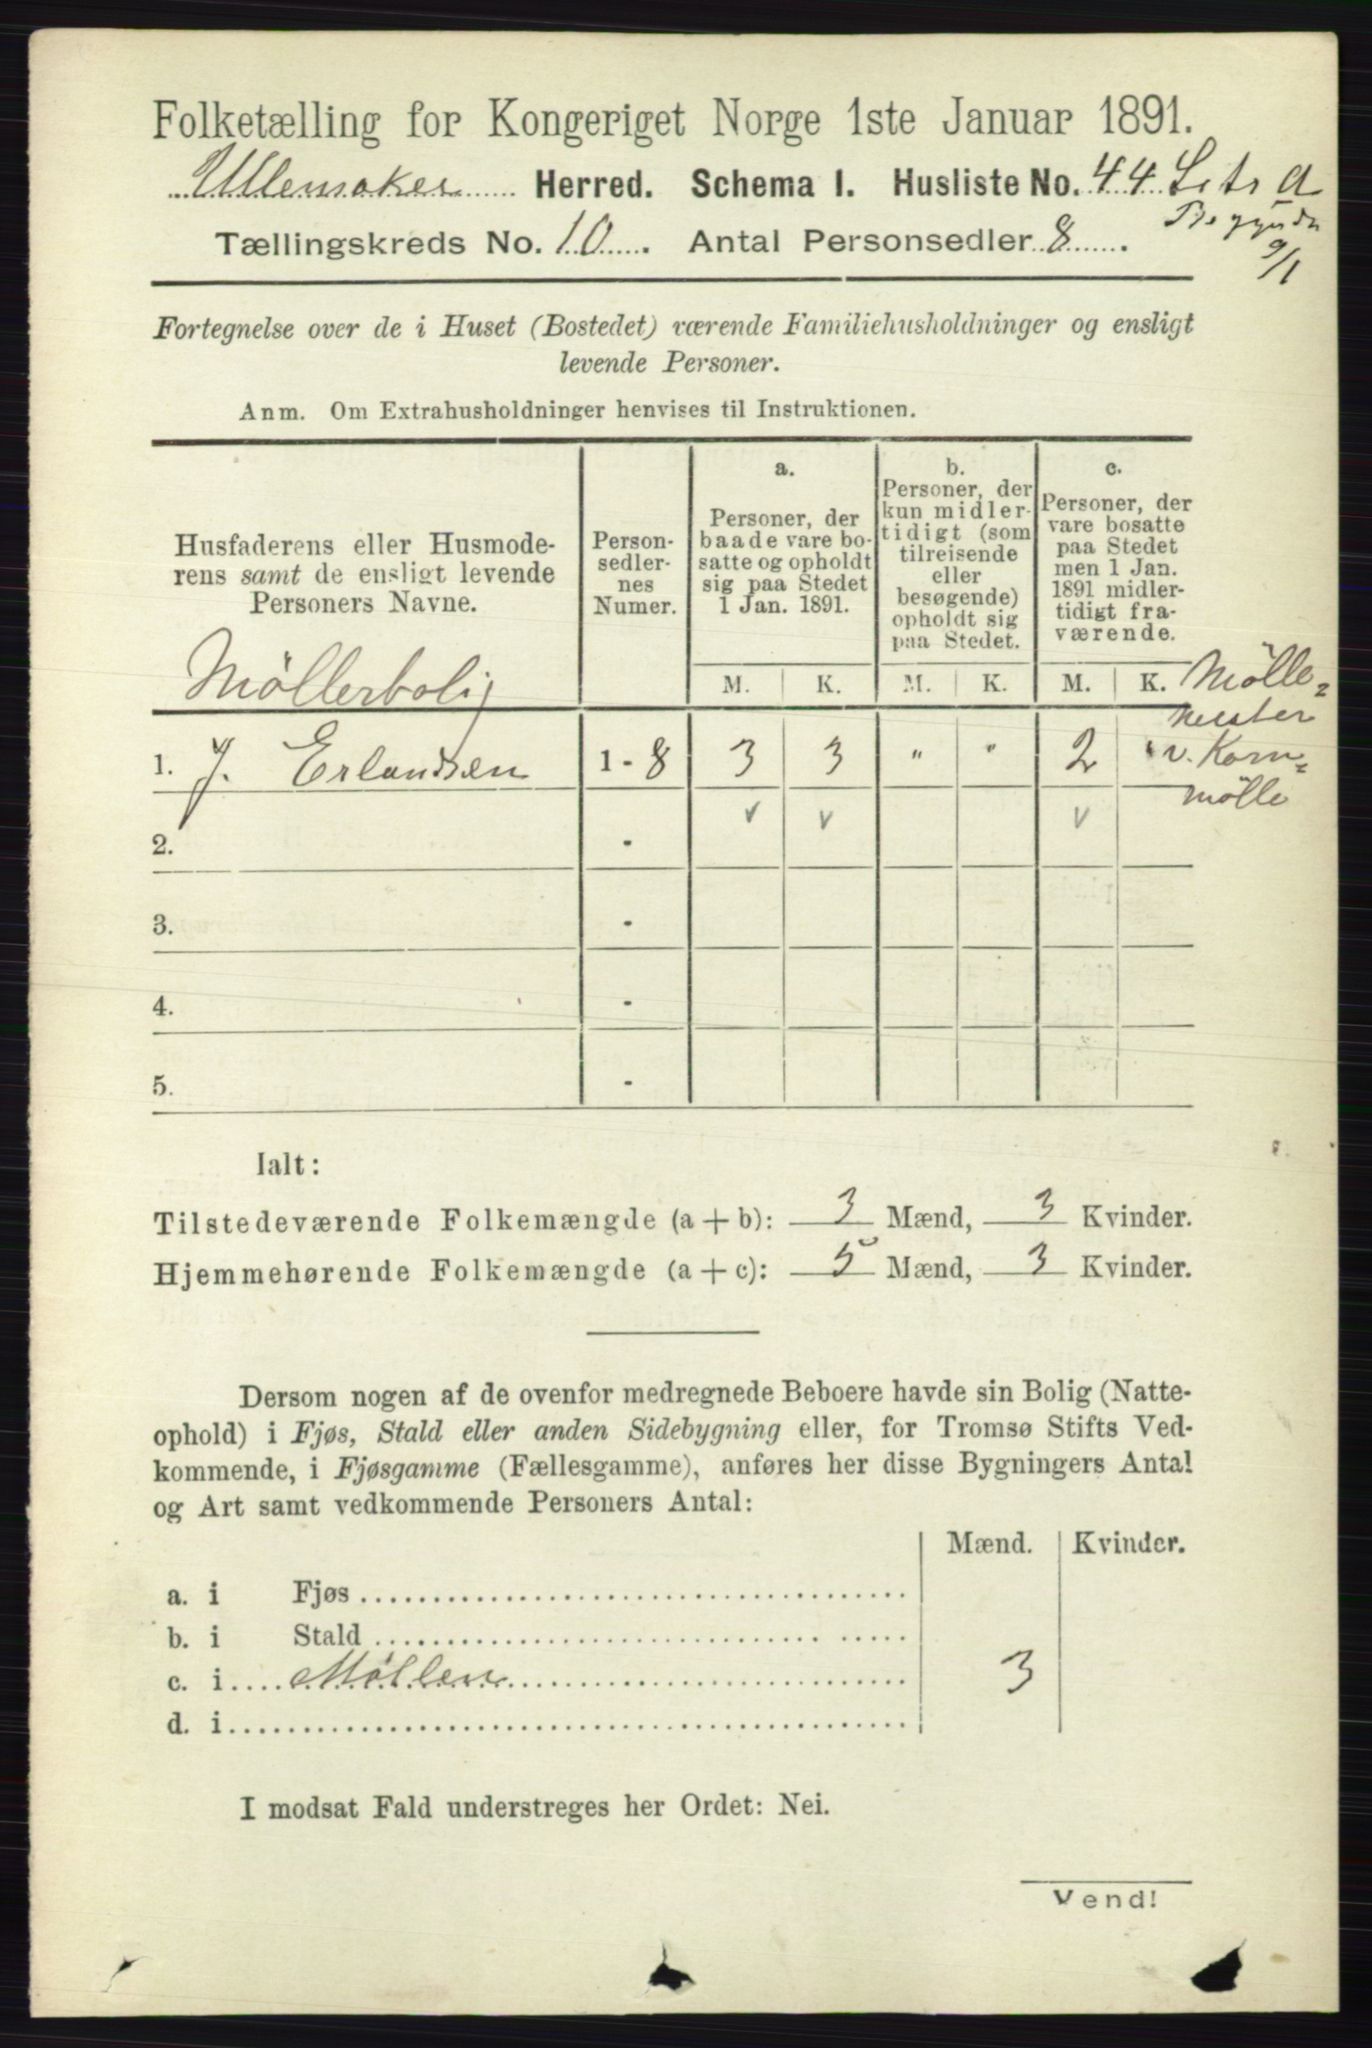 Folketælling for Kongeriget Norge 1ste Januar 1891.
Ullensaker Herred. Schema I. Husliste No. 44 Litr A
Tællingskreds No. 10. Antal Personsedler 8.
9/1
Fortegnelse over de i Huset (Bostedet) værende Familiehusholdninger og ensligt
levende Personer.
Anm. Om Extrahusholdninger henvises til Instruktionen.
Husfaderens eller Husmode-
rens samt de ensligt levende
Personers Navne.
Person-
sedler-
nes
Numer.
a.
Personer, der
baade vare bo-
satte og opholdt
sig paa Stedet
1 Jan. 1891.
b.
Personer, der
kun midler-
tidigt (som
tilreisende
eller
besøgende)
opholdt sig
paa Stedet.
c.
Personer, der
vare bosatte
paa Stedet
men 1 Jan.
1891 midler-
tidigt fra-
værende.
Möllerbolig
M. K. M. K. M. K.
Mölle=
mester
v. Korn=
mölle
1. J. Erlandsen 1 - 8 3 3 " " 2 "
v v v
2. -
3. -
4. -
5. -
Ialt:
Tilstedeværende Folkemængde (a + b): 3 Mænd, 3 Kvinder.
Hjemmehørende Folkemængde (a + c): 5 Mænd, 3 Kvinder.
Dersom nogen af de ovenfor medregnede Beboere havde sin Bolig (Natte-
ophold) i Fjøs, Stald eller anden Sidebygning eller, for Tromsø Stifts Ved-
kommende, i Fjøsgamme (Fællesgamme), anføres her disse Bygningers Antal
og Art samt vedkommende Personers Antal:
Mænd. Kvinder.
a. i Fjøs
b. i Stald
c. i Möllen 3
d. i
I modsat Fald understreges her Ordet: Nei.
Vend!